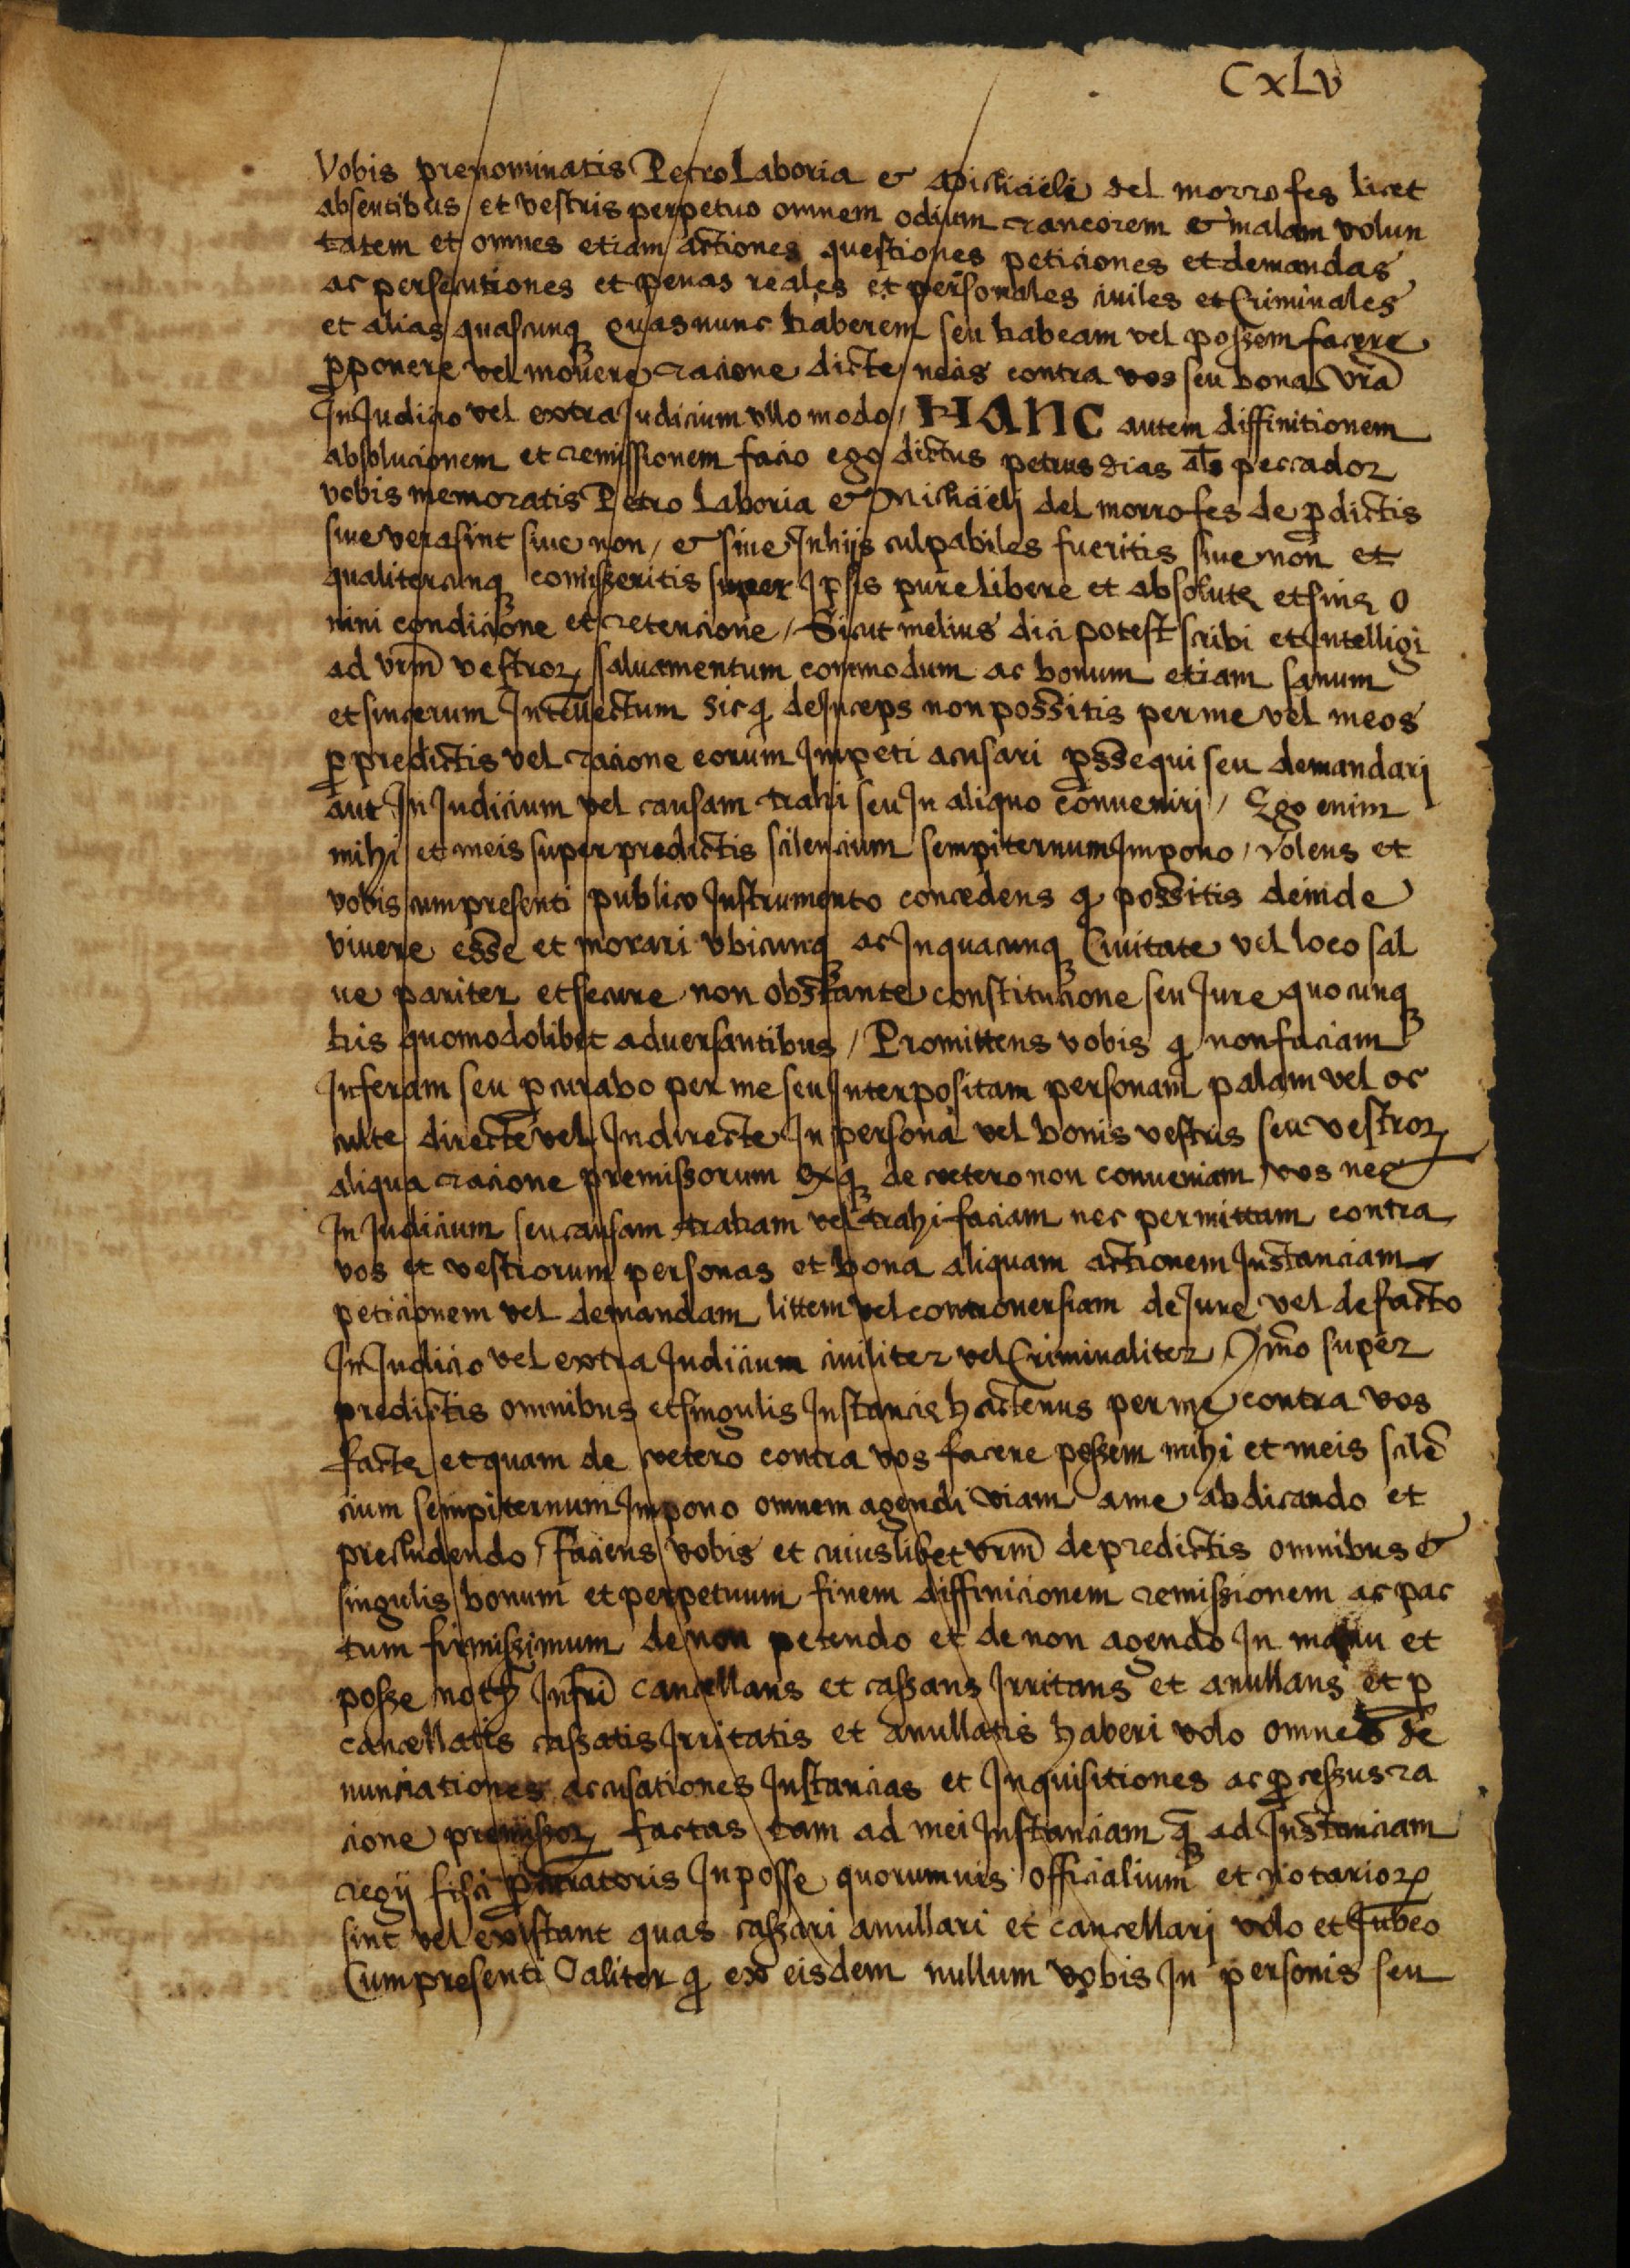 CxLv
Vobis prenominatis Petro Laboria & Michaeli del morrofes licet
absentibus / et vestris perpetuo omnem odium rancorem & malam volun
tatem et omnes etiam actiones questiones peticiones et demandas
ac persecutiones et penas reales et personales ciuiles et Criminales
et alias quascunqꝫ quas nunc haberem seu habeam vel possem facere
ꝓponere vel mouere racione dicte necis contra vos seu bona vr̃a
In Judicio vel extra Judicium vllo modo / HANC autem diffinitionem
absolucionem et remissionem facio ego dictus petrus dias al̃s peccador
vobis memoratis Petro Laboria & Michaelj del morrofes de p̄dictis
siue vera sint siue non / & siue In hijs culpabiles fueritis siue non et
qualitercunqꝫ comisseritis super Ip̄sis pure libere et absolute et sine o
mini condicione et retencione / Sicut melius dici potest scribi et Intelligi
ad vr̃m vestroꝝ saluamentum commodum ac bonum etiam sanum
et sincerum Intellectum sic ꝙ deInceps non possitis per me vel meos
ꝓ predictis vel racione eorum Impeti acusari ꝓssequi seu demandarj
aut In Judicium vel causam trahi seu In aliquo conuenirj / Ego enim
mihi et meis super predictis silencium sempiternum Impono / Volens et
vobis cum presenti publico Instrumento concedens ꝙ possitis deinde
viuere esse et morari vbicunqꝫ ac In quacunqꝫ Ciuitate vel loco sal
ue pariter et secure non obstante constitucione seu Jure quocunqꝫ
his quomodolibet aduersantibus / Promittens vobis ꝙ non faciam
Inferam seu ꝓcurabo per me seu Interpositam personam palam vel oc
culte directe vel Indirecte In persona vel bonis vestris seu vestroꝝ
aliqua racione premissorum Exqꝫ de cetero non conueniam vos nec
In Judicium seu causam traham vel trahi faciam nec permittam contra
vos et vestrorum personas et bona aliquam actionem Instanciam
peticionem vel demandam littem vel controuersiam de Jure vel de facto
In Judicio vel extra Judicium ciuiliter vel Criminaliter Ym̃o super
predictis omnibus et singulis Instancie hactenus per me contra vos
facte et quam de cetero contra vos facere possem mihi et meis silẽ
cium sempiternum Impono omnem agendi viam a me abdicando et
precludendo / Faciens vobis et cuiuslibet vr̃m de predictis omnibus &
singulis bonum et perpetuum finem diffinicionem remissionem ac pac
tum firmissimum de non petendo et de non agendo In manu et
posse not̃ Infrĩ cancellans et cassans Irritans et anullans et ꝓ
cancellatis cassatis Irritatis et anullatis haberi volo omnes de
nunciationes acusationes Instancias et Inquisitiones ac ꝓcessus ra
cione premissoꝝ factas tam ad mei Instanciam qꝫ ad Instanciam
regij fisci ꝓcuratoris In posse quorumuis officialium et notarioꝝ
sint vel existant quas cassari anullari et cancellarj volo et Jubeo
Cum presenti Taliter ꝙ ex eisdem nullum vobis In personis seu